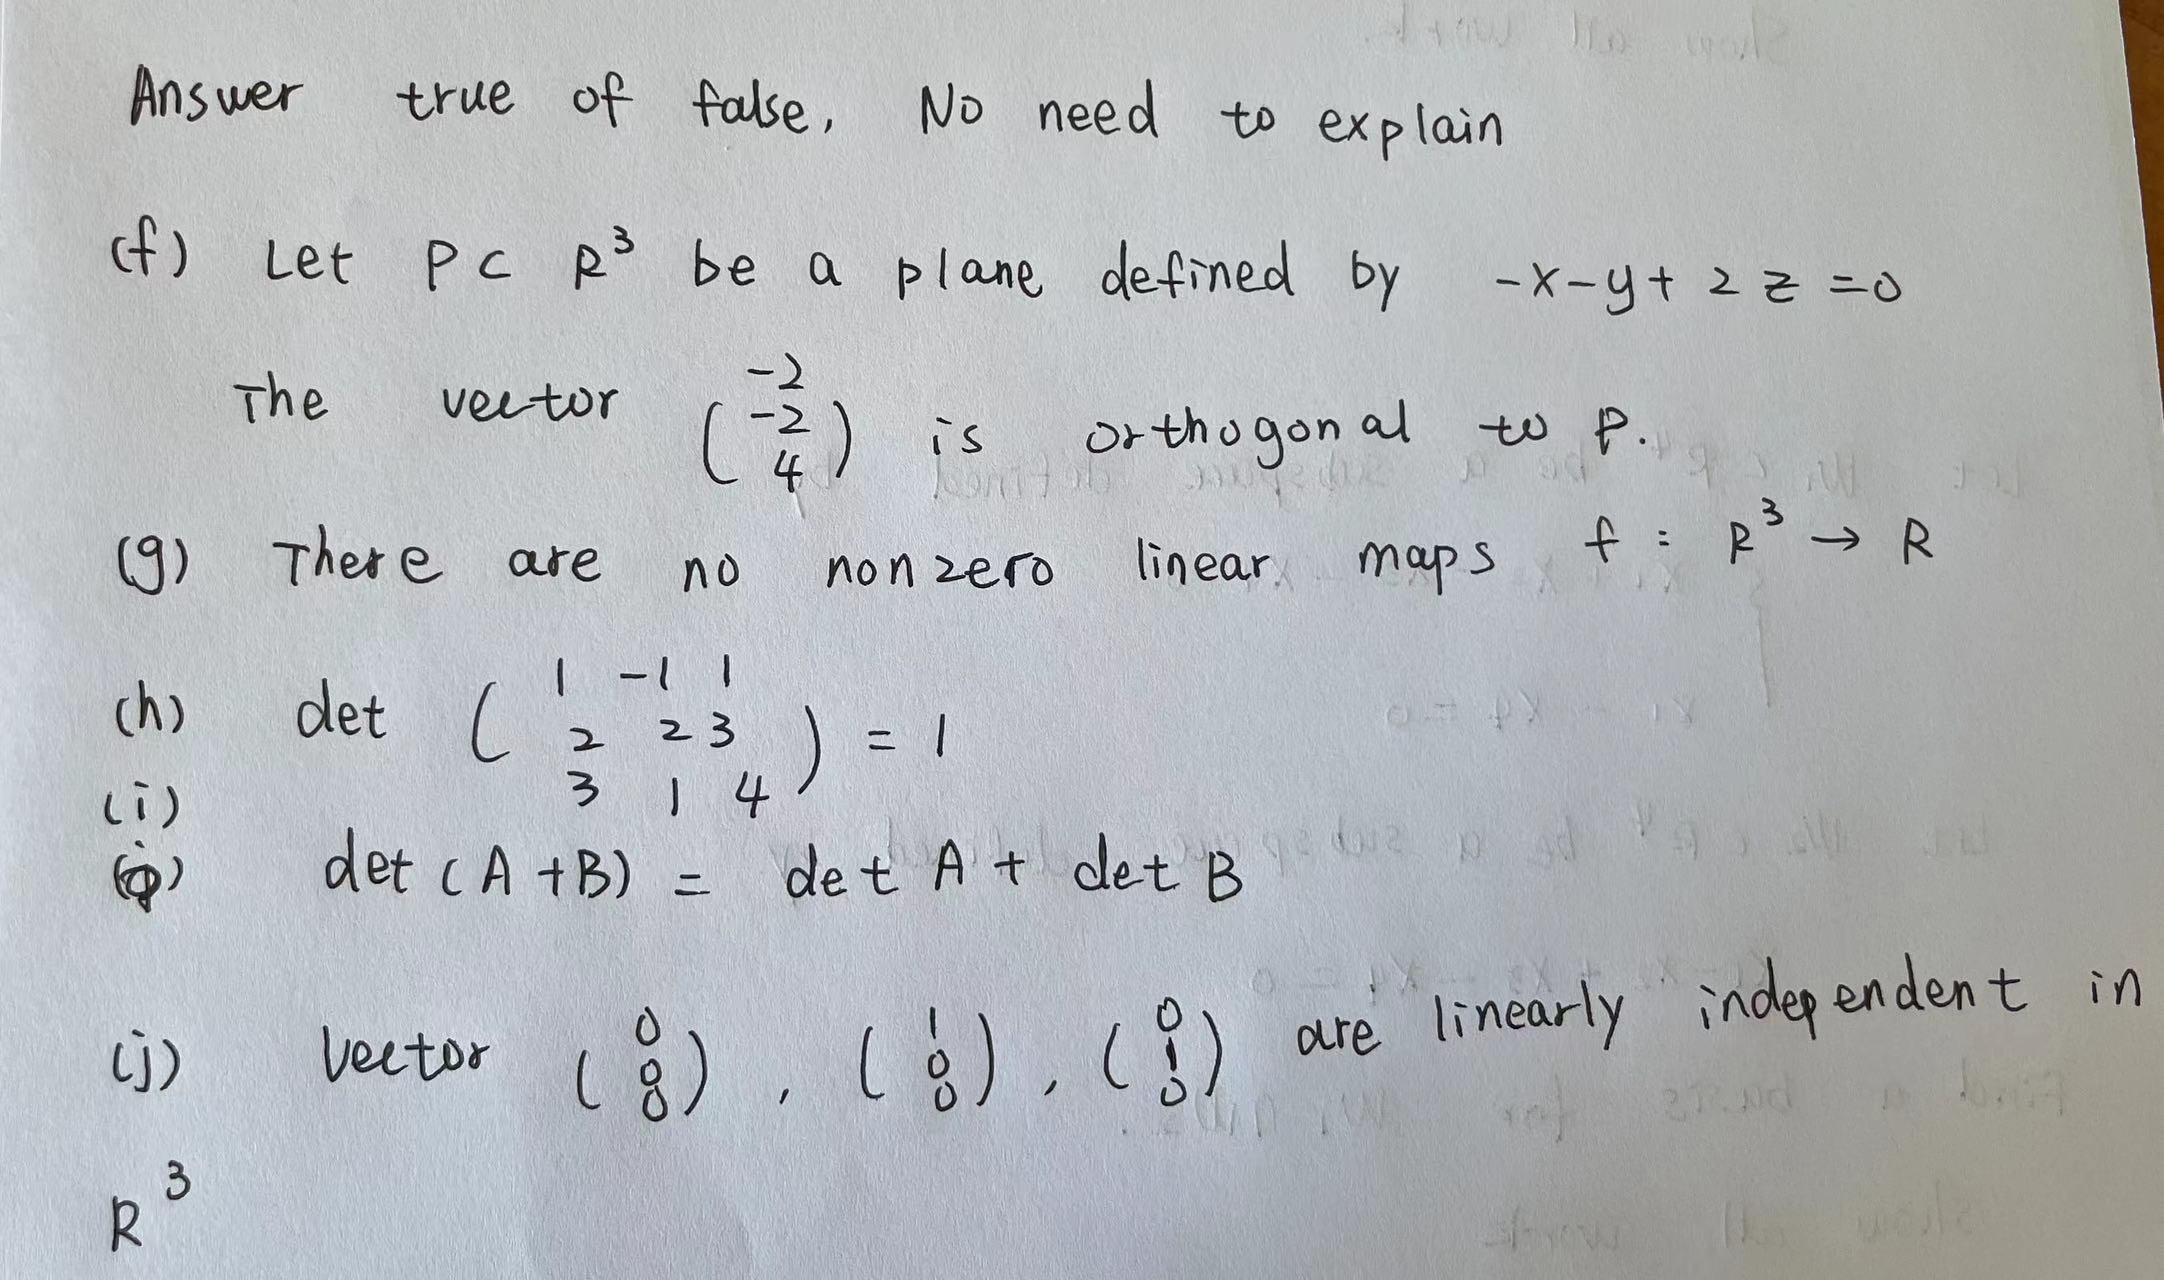 Answer true of false, No need to explain
(f) Let P ⊂ R³ be a plane defined by -x-y+2z=0
-2
The vector ( -2 ) is orthogonal to P.
4
(g) There are no nonzero linear maps f : R³ → R
1 -1 1
(h) det ( 2 2 3 ) = 1
3 1 4
(i)
det (A+B) = det A + det B
0 1 0
(j) Vector ( 0 ) , ( 0 ) , ( 1 ) are linearly independent in
0 0 0
R³